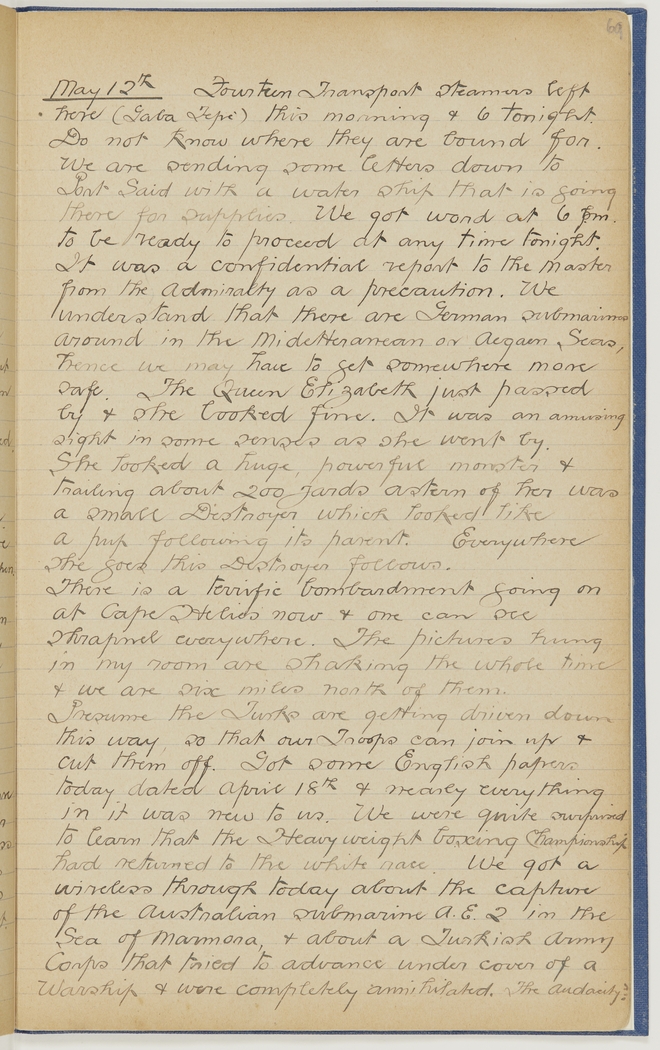 69
May 12th Fourteen Transport steamers left
here (Gaba Tepe) this morning & 6 tonight.
Do not know where they are bound for.
We are sending some letters down to
Port Said with a water ship that is going
there for supplies. We got word at 6 pm.
to be ready to proceed at any time tonight.
It was a confidential report to the Master
from the Admiralty as a precaution. We
understand that there are German submarines
around in the Midetteranean or Aegaen Seas,
hence we may have to get somewhere more
safe. The Queen Elizabeth just passed
by & she looked fine. It was an amusing
sight in some senses as she went by.
She looked a huge, powerful monster &
trailing about 200 yards astern of her was
a small Destroyer which looked like
a pup following its parent. Everywhere
she goes this Destroyer follows.
There is a terrific bombardment going on
at Cape Helios now & one can see
shrapnel everywhere. The pictures hung
in my room are shaking the whole time
& we are six miles north of them.
Presume the Turks are getting driven down
this way, so that our Troops can join up &
cut them off. Got some English papers
today dated April 18th & nearly everything
in it was new to us. We were quite surprised
to learn that the Heavyweight boxing Championship
had returned to the white race. We got a
wireless through today about the capture
of the Australian submarine A.E.2 in the
Sea of Marmora, & about a Turkish Army
Corps that tried to advance under cover of a
Warship & were completely annihilated. The audacity